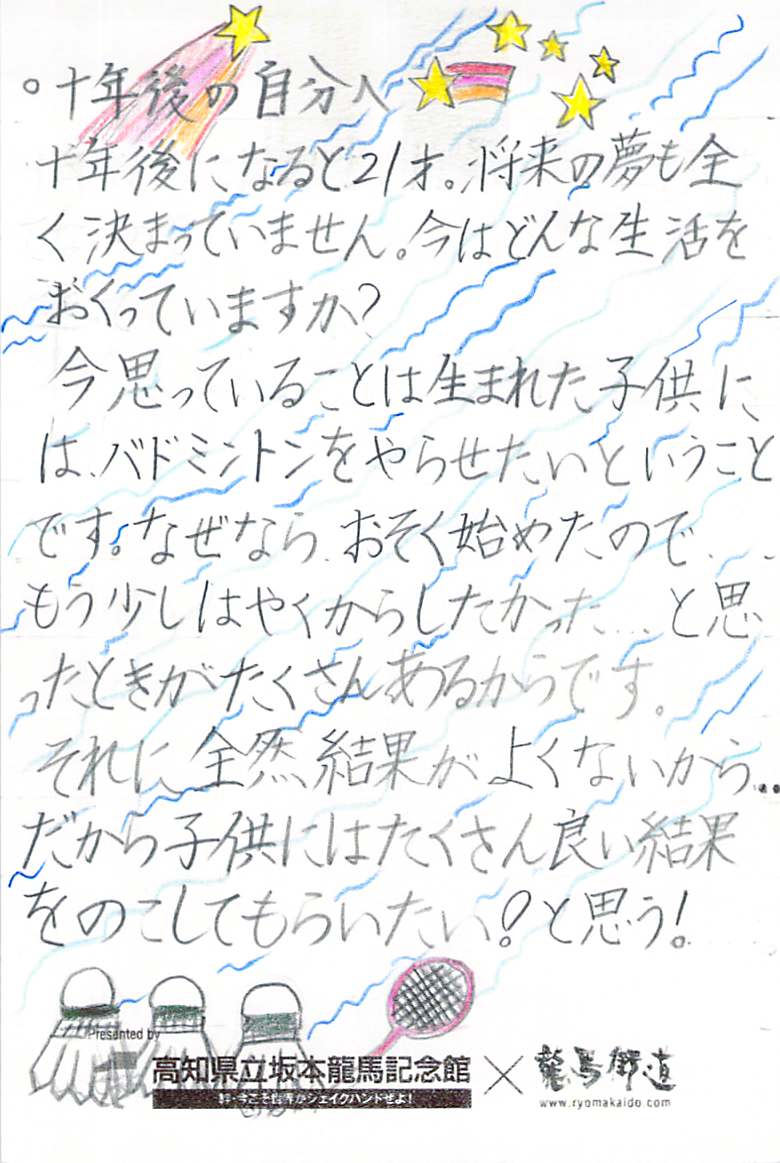 ○十年後の自分へ
十年後になると21才。将来の夢も全
く決まっていません。今はどんな生活を
おくっていますか?
今思っていることは生まれた子供に
は、バドミントンをやらせたいということ
です。なぜなら、おそく始めたので、
もう少しはやくからしたかった…と思
ったときがたくさんあるからです。
それに全然結果がよくないから…
だから子供にはたくさん良い結果
をのこしてもらいたい!と思う!
Presented by
高知県立坂本龍馬記念館 × 龍馬街道
絆・今こそ世界がシェイクハンドぜよ!
www.ryomakaido.com